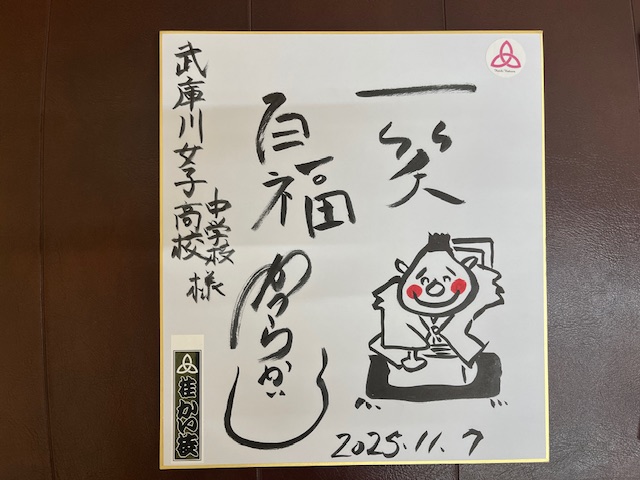 一笑
百福
かつらかい し
武庫川女子高校
中学校
様
2025.11.7
桂かい枝